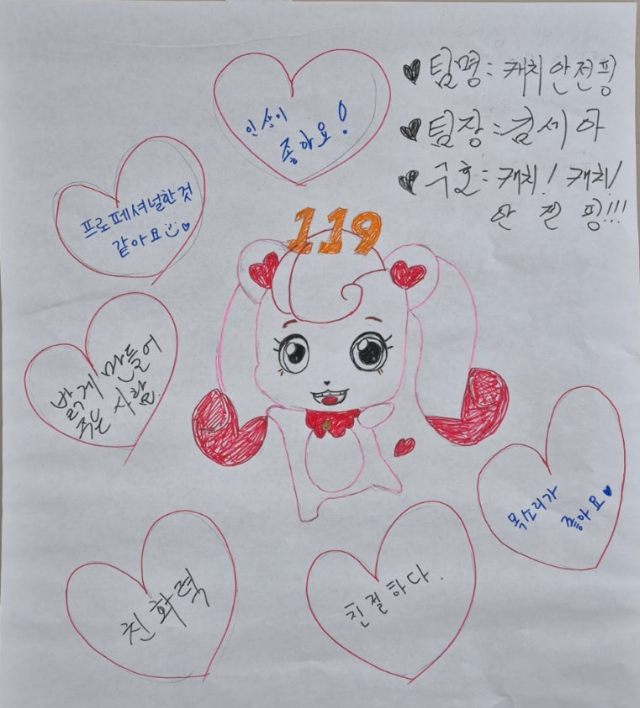 팀명 : 캐치 안전핑
팀장 : 김세아
구호 : 캐치! 캐치!
안전핑!!!
인상이
좋아요!
프로페셔널한 것
같아요
119
밝게 만들어
주는 사람
목소리가
좋아요
친화력
친절하다.